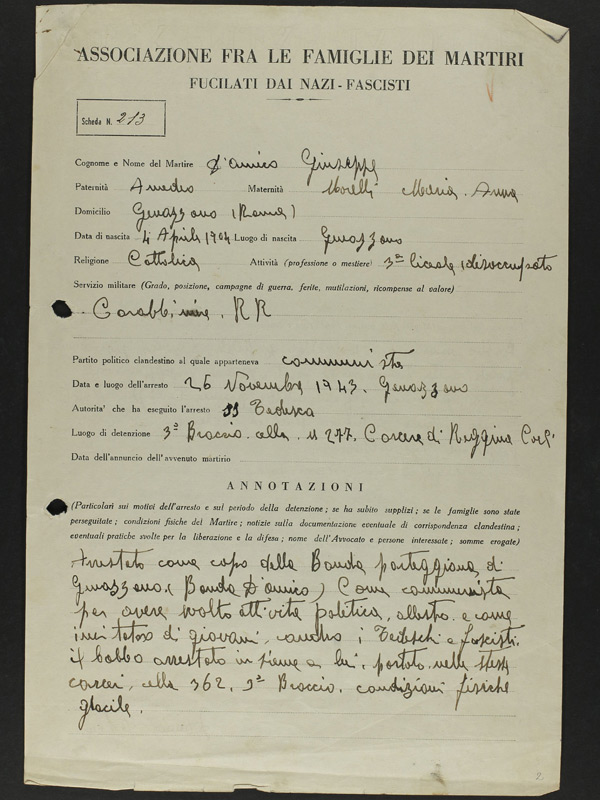 ASSOCIAZIONE FRA LE FAMIGLIE DEI MARTIRI
FUCILATI DAI NAZI-FASCISTI
Scheda N. 213
Cognome e Nome del Martire D'Amico Giuseppe
Paternità Amedeo Maternità Morelli Maria Anna
Domicilio Genazzano (Roma)
Data di nascita 4 Aprile 1904 Luogo di nascita Genazzano
Religione Cattolica Attività (professione o mestiere) 3ª liceale (disoccupato
Servizio militare (Grado, posizione, campagne di guerra, ferite, mutilazioni, ricompense al valore)
Carabbiniere. RR
Partito politico clandestino al quale apparteneva comunista
Data e luogo dell'arresto 26 Novembre 1943. Genazzano
Autorità che ha eseguito l'arresto SS Tedesca
Luogo di detenzione 3º Braccio. cella. n 277. Carcere di Reggina Celi
Data dell'annuncio dell'avvenuto martirio
ANNOTAZIONI
(Particolari sui motivi dell'arresto e sul periodo della detenzione; se ha subito supplizi; se le famiglie sono state
perseguitate; condizioni fisiche del Martire; notizie sulla documentazione eventuale di corrispondenza clandestina;
eventuali pratiche svolte per la liberazione e la difesa; nome dell'Avvocato e persone interessate; somme erogate)
Arrestato come capo della Banda parteggiana di
Genazzano. (Banda D'amico) Come communista
per avere svolto attività politica, e come
di giovani, contro i Tedeschi e fascisti.
il babbo arrestato in sieme a lui, portato nelle stesse
carceri, cella 362. 3º Braccio. condizioni fisiche
glacile.
2